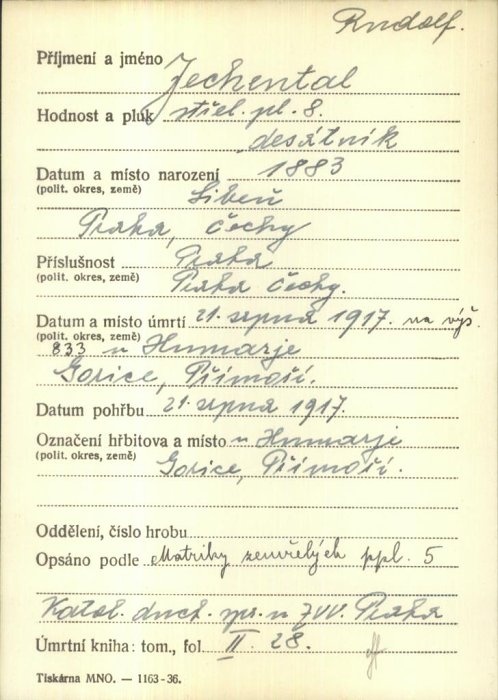 Rudolf.
Příjmení a jméno Jechental
Hodnost a pluk střel. pl. 8.
desátník
Datum a místo narození 1883
(polit. okres, země) Libeň
Praha, Čechy
Příslušnost Praha
(polit. okres, země) Praha Čechy.
Datum a místo úmrtí 21. srpna 1917. na výš.
(polit. okres, země)
833 u Humarje
Gorice, Přímoří.
Datum pohřbu 21. srpna 1917.
Označení hřbitova a místo u Humarje
(polit. okres, země) Gorice, Přímoří.
Oddělení, číslo hrobu
Opsáno podle Matriky zemřelých ppl. 5
Katol. duch. spr. u ZVV. Praha
Úmrtní kniha: tom., fol II. 28.
Tiskárna MNO. — 1163-36.